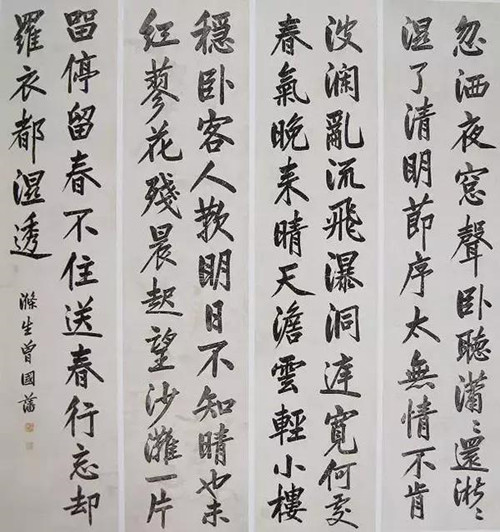 忽洒夜窓聲卧聽瀟〻還淅〻
湿了清明節序太無情不肯
波澜亂流飛瀑洞庭寬何交
春氣晚来晴天澹雲輕小樓
穩卧客人歎明日不知晴也未
红蓼花殘晨起望沙灘一片
畱停留春不住送春行忘却
羅衣都湿透
滌生曾國藩